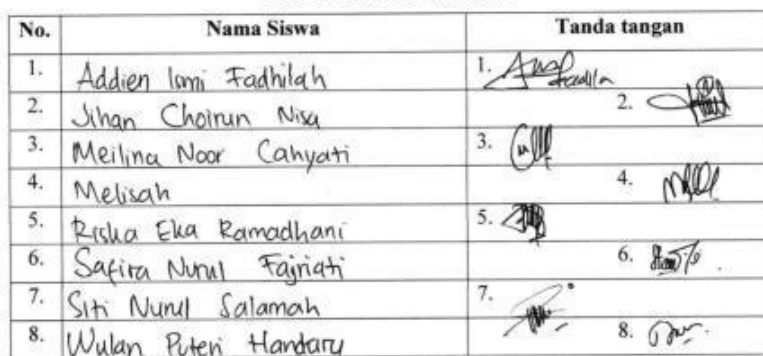 No. Nama Siswa Tanda tangan
1. Addien Ismi Fadhilah 1.
2. Jihan Choirun Nisa 2.
3. Meilina Noor Cahyati 3.
4. Melisah 4.
5. Riska Eka Ramadhani 5.
6. Safira Nurul Fajriati 6.
7. Siti Nurul Salamah 7.
8. Wulan Puteri Handary 8.